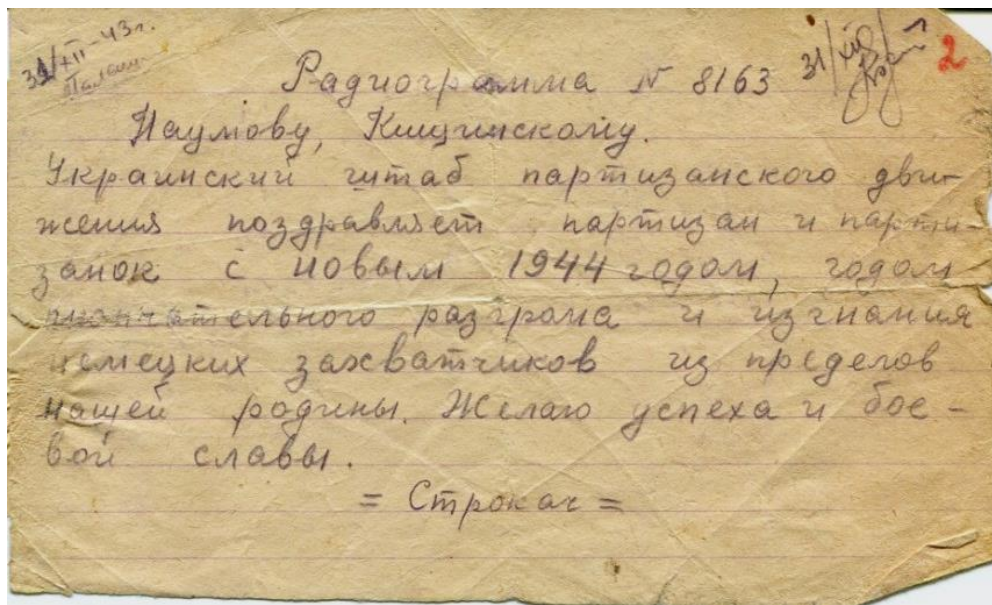 31/XII-43г.
31/XII
2
Радиограмма N 8163
Наумову, Кищинскому.
Украинский штаб партизанского дви-
жения поздравляет партизан и парти-
занок с новым 1944 годом, годом
окончательного разгрома и изгнания
немецких захватчиков из пределов
нашей родины. Желаю успеха и бое-
вой славы.
= Строкач =